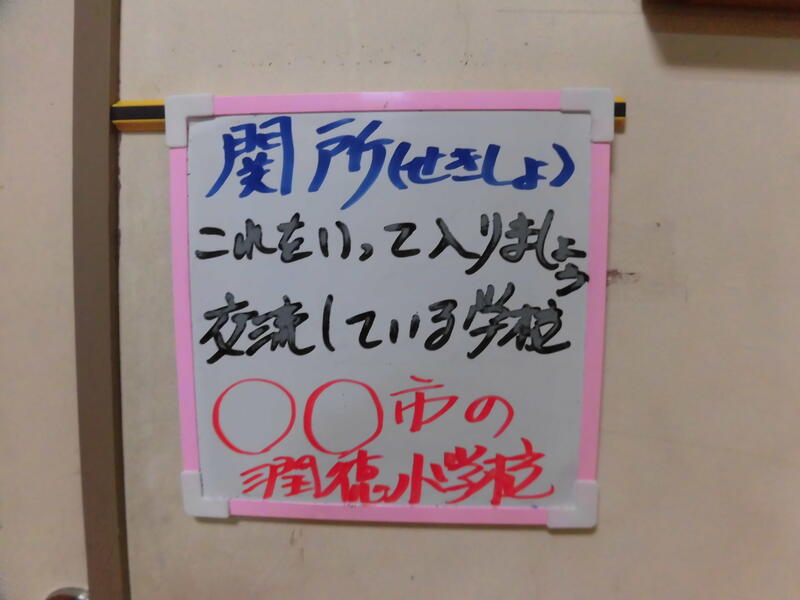 関所(せきしょ)
これをいって入りましょう
交流している学校
○○市の
潤徳小学校